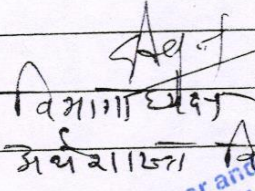 विभागाध्यक्ष
अर्थशास्त्र वि
r and